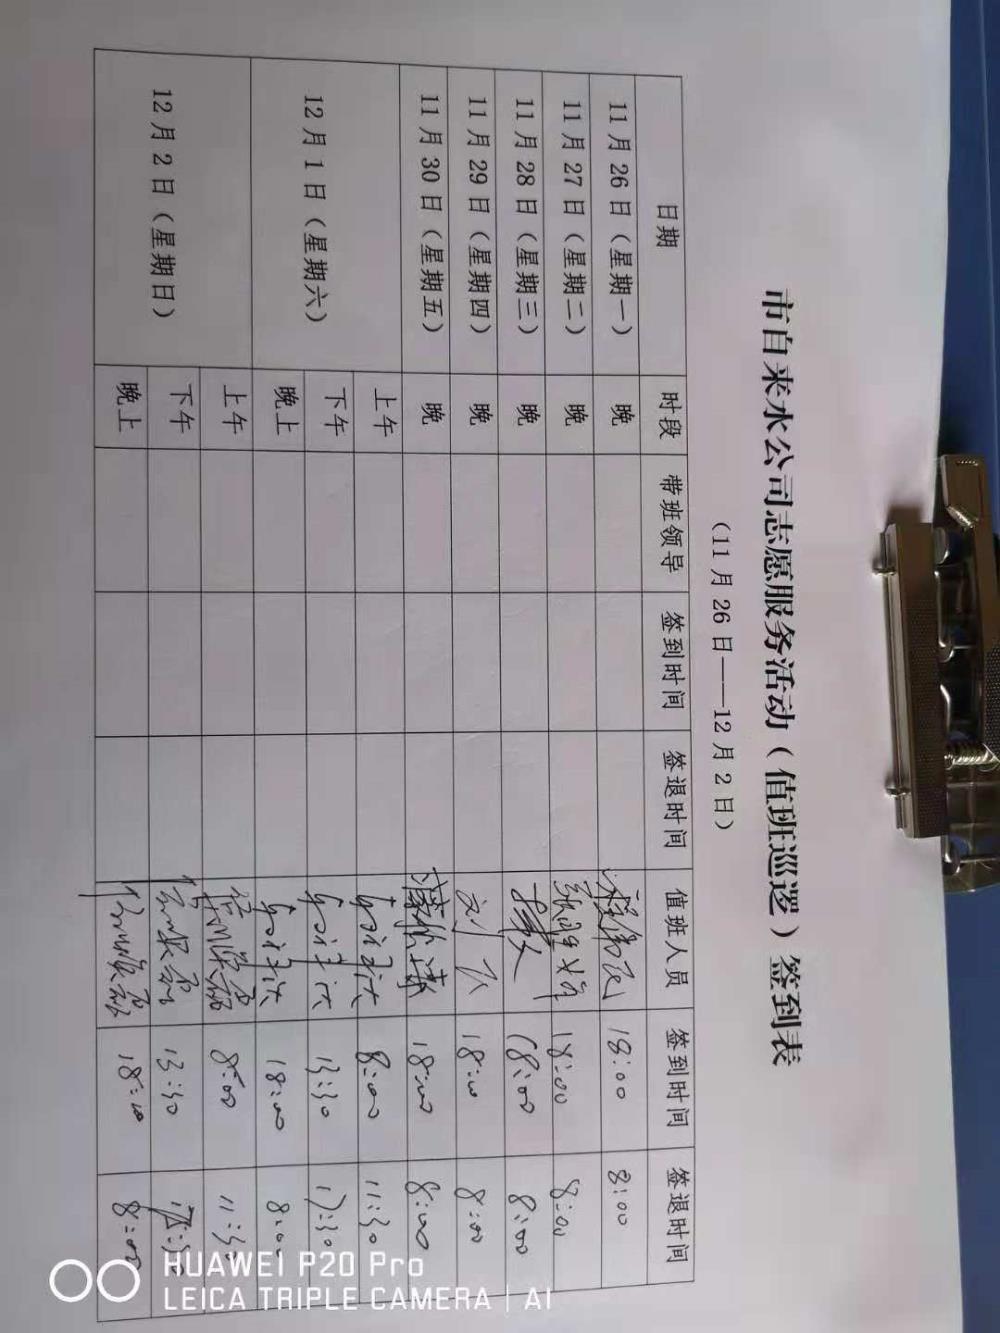 市自来水公司志愿服务活动（值班巡逻）签到表
（11月26日——12月2日）
日期 时段 带班领导 签到时间 签退时间 值班人员 签到时间 签退时间
11月26日（星期一） 晚 18:00 8:00
11月27日（星期二） 晚 18:00 8:00
11月28日（星期三） 晚 18:00 8:00
11月29日（星期四） 晚 18:00 8:00
11月30日（星期五） 晚 18:00 8:00
12月1日（星期六） 上午 8:00 11:30
下午 13:30 17:30
晚上 18:00 8:00
12月2日（星期日） 上午 8:00 11:30
下午 13:30
晚上 18:00 8:00
HUAWEI P20 Pro
LEICA TRIPLE CAMERA | AI